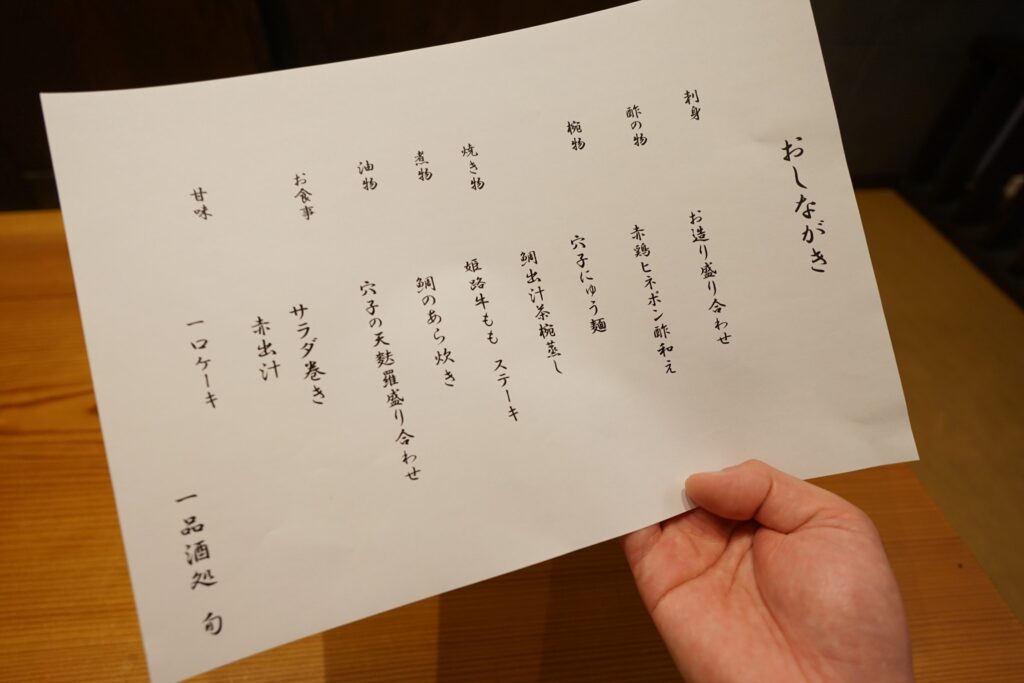 おしながき
刺身
お造り盛り合わせ
酢の物
赤鶏ヒネポン酢和え
椀物
穴子にゅう麺
鯛出汁茶椀蒸し
焼き物
姫路牛もも ステーキ
煮物
鯛のあら炊き
油物
穴子の天麩羅盛り合わせ
お食事
サラダ巻き
赤出汁
甘味
一口ケーキ
一品酒処 旬